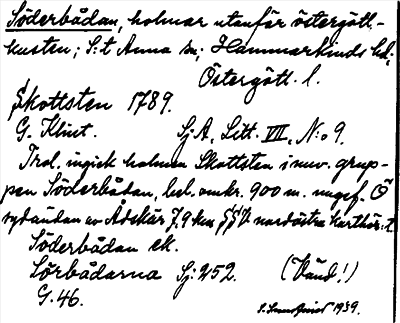 Söderbådan, holmar utanför östergötl.-
kusten; S:t Anna sn; Hammarkinds hd;
Östergötl. l.
Skottsten 1789.
G. Klint. Sj.A, Litt. VII, N:o 9.
Trol. ingick holmen Skottsten i nuv. grup-
pen Söderbådan, bel. omkr. 900 m. ungef. Ö
sydändan av Ådskär 7,9 km nordöstra
Söderbådan ek.
Sörbådarna Sj: 252. (Vänd!)
G. 46.
1939.